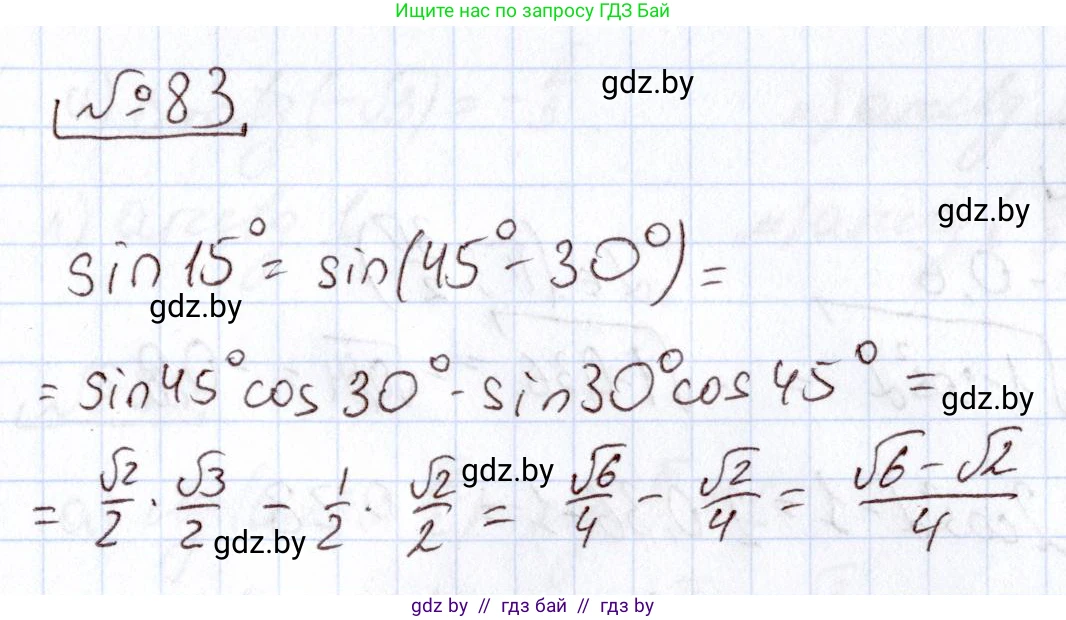 Ищите нас по запросу ГДЗ Бай
№83 gdz.by
gdz.by
sin 15° = sin(45° - 30°) =
gdz.by
= sin45° cos 30° - sin30° cos 45° =
gdz.by
= √2/2 · √3/2 - 1/2 · √2/2 = √6/4 - √2/4 = (√6 - √2)/4
gdz.by
gdz.by
gdz by // гдз бай // гдз by